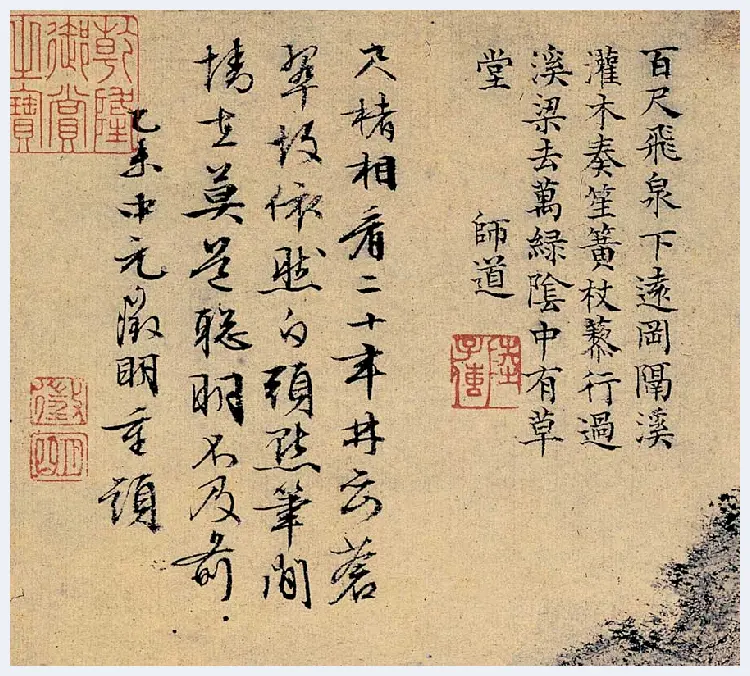 百尺飛泉下遠岡隔溪
灌木奏笙簧杖藜行過
溪梁去萬緑陰中有草
堂
師道
陸子傳
尺楮相看二十年蒼
翠故依然白頭點筆閒
情在莫道聰明不及前
乙未中元徵明重題
乾隆御賞之寶
徵明